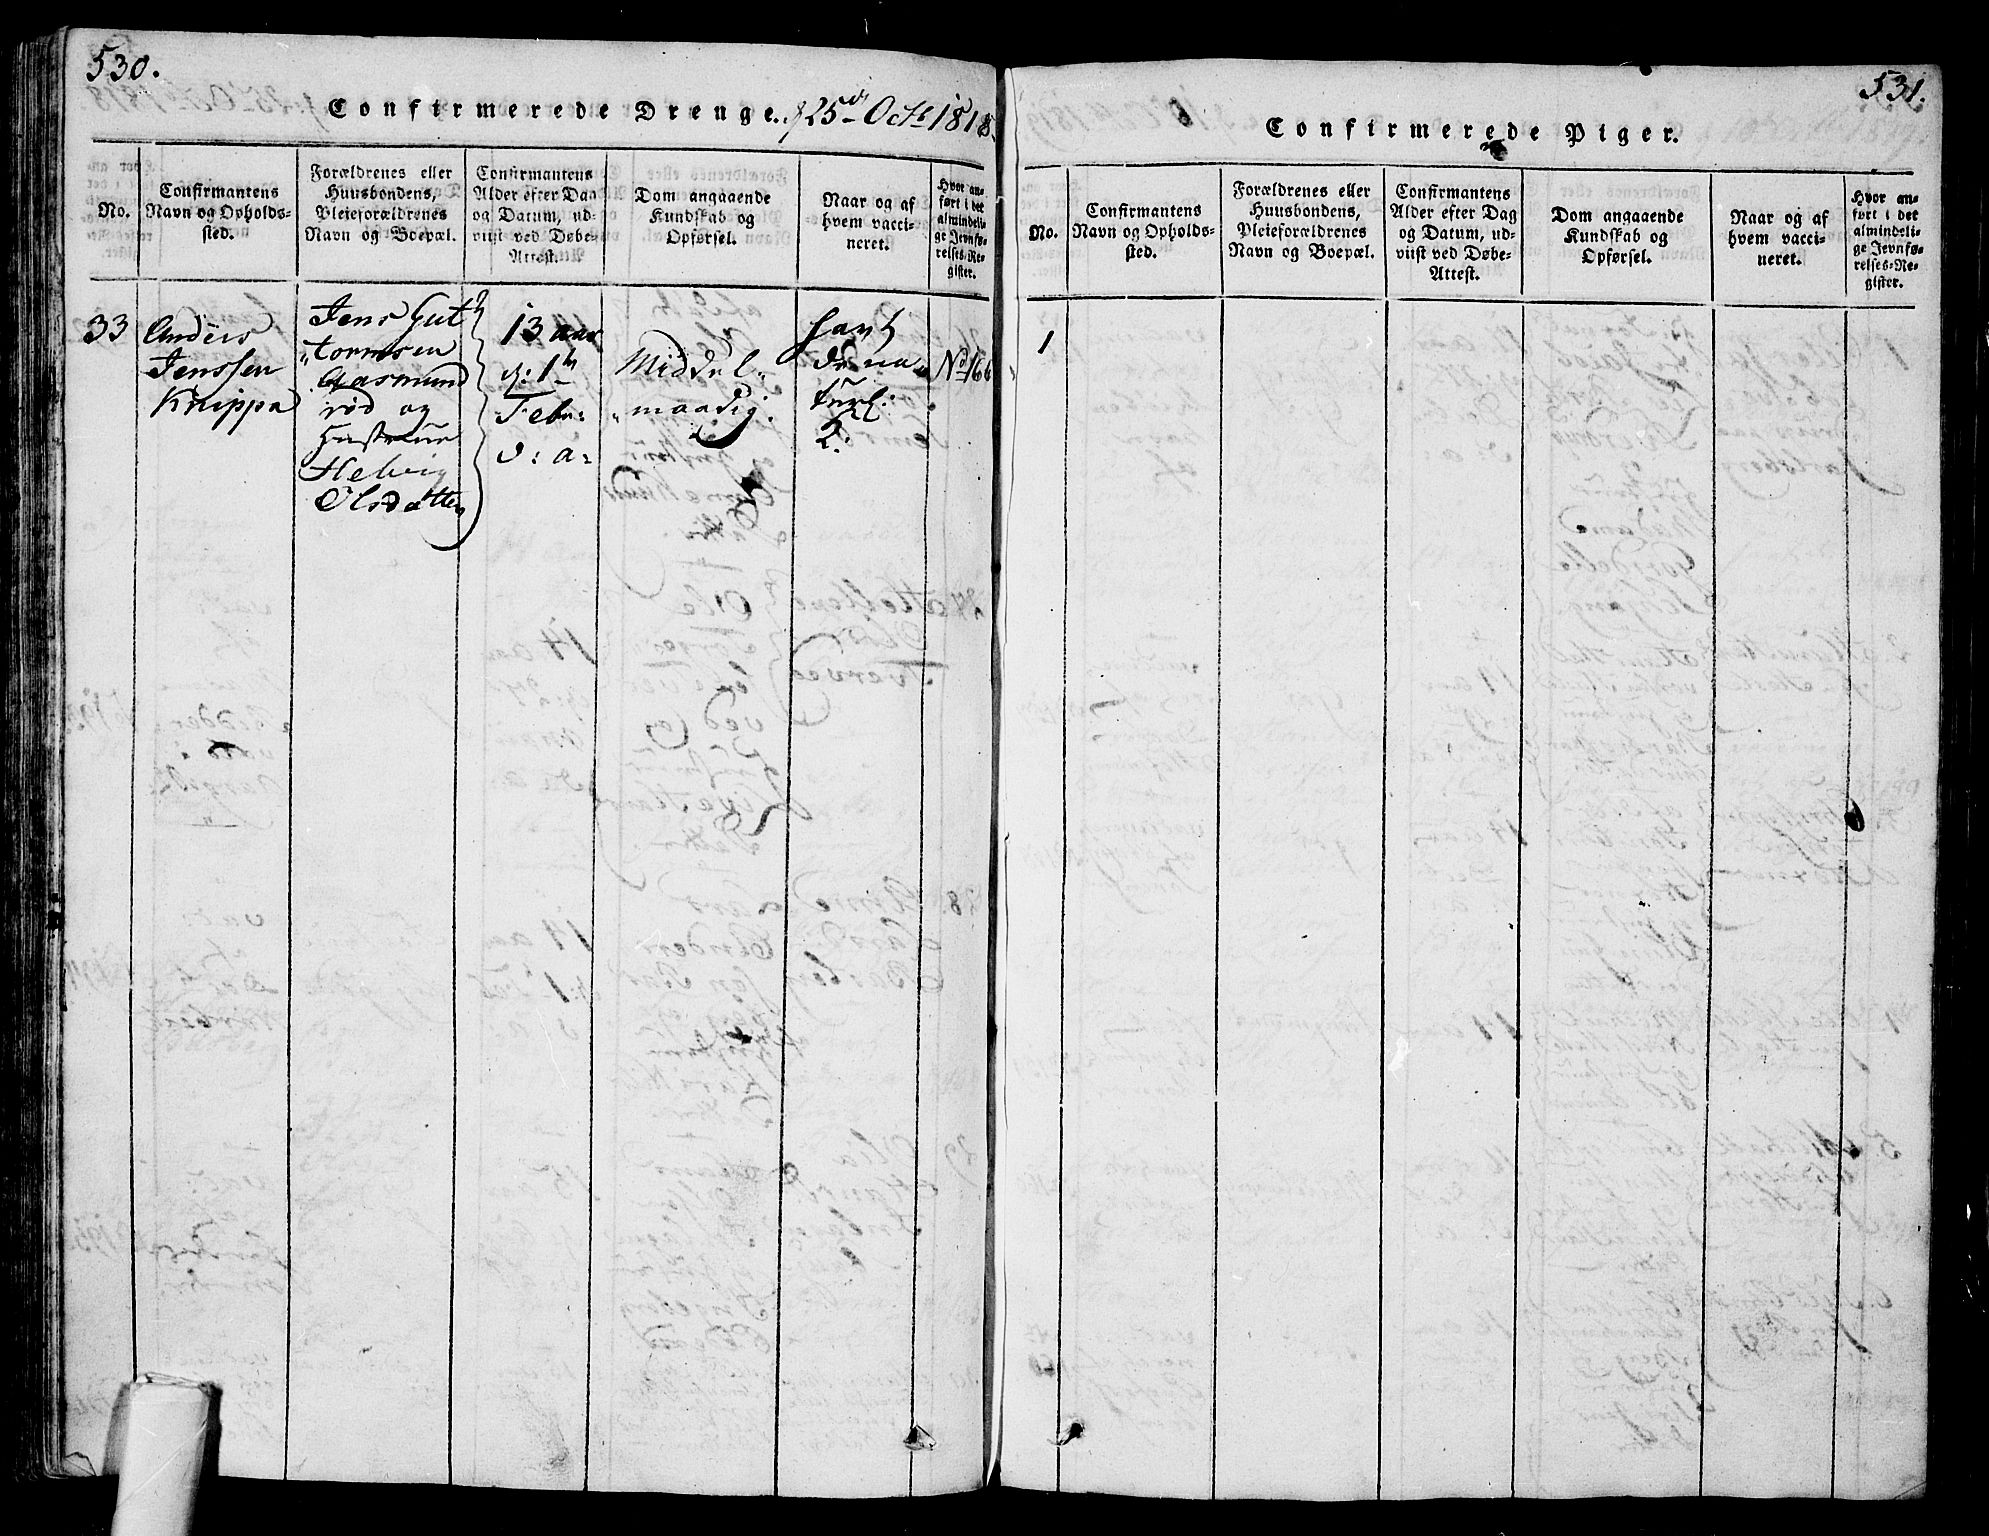 530.
Confirmerede Drenge. d 25de Octr 1818.
No.
Confirmantens
Navn og Opholds-
sted.
Forældrenes eller
Huusbondens,
Pleieforældrenes
Navn og Boepæl.
Confirmantens
Alder efter Dag
og Datum, ud-
viist ved Døbe-
Attest.
Dom angaaende
Kundskab og
Opførsel.
Naar og af
hvem vacci-
neret.
Hvor an-
ført i det
almindeli-
ge Jevnfø-
relses-Re-
gister.
33
Anders
Jenssen
Knippa
Jens Gut
tormsen
Aasmund
rød og
Hustrue
Helvig
Olsdatter
13 aar
d: 1te
Febr:
d: a:
Middel-
maadig.
havt
de na
turl:
K:
No 166
531.
Confirmerede Piger.
No.
Confirmantens
Navn og Opholds-
sted.
Forældrenes eller
Huusbondens,
Pleieforældrenes
Navn og Boepæl.
Confirmantens
Alder efter Dag
og Datum, ud-
viist ved Døbe-
Attest.
Dom angaaende
Kundskab og
Opførsel.
Naar og af
hvem vacci-
neret.
Hvor an-
ført i det
almindeli-
ge Jevnfø-
relses-Re-
gister.
1